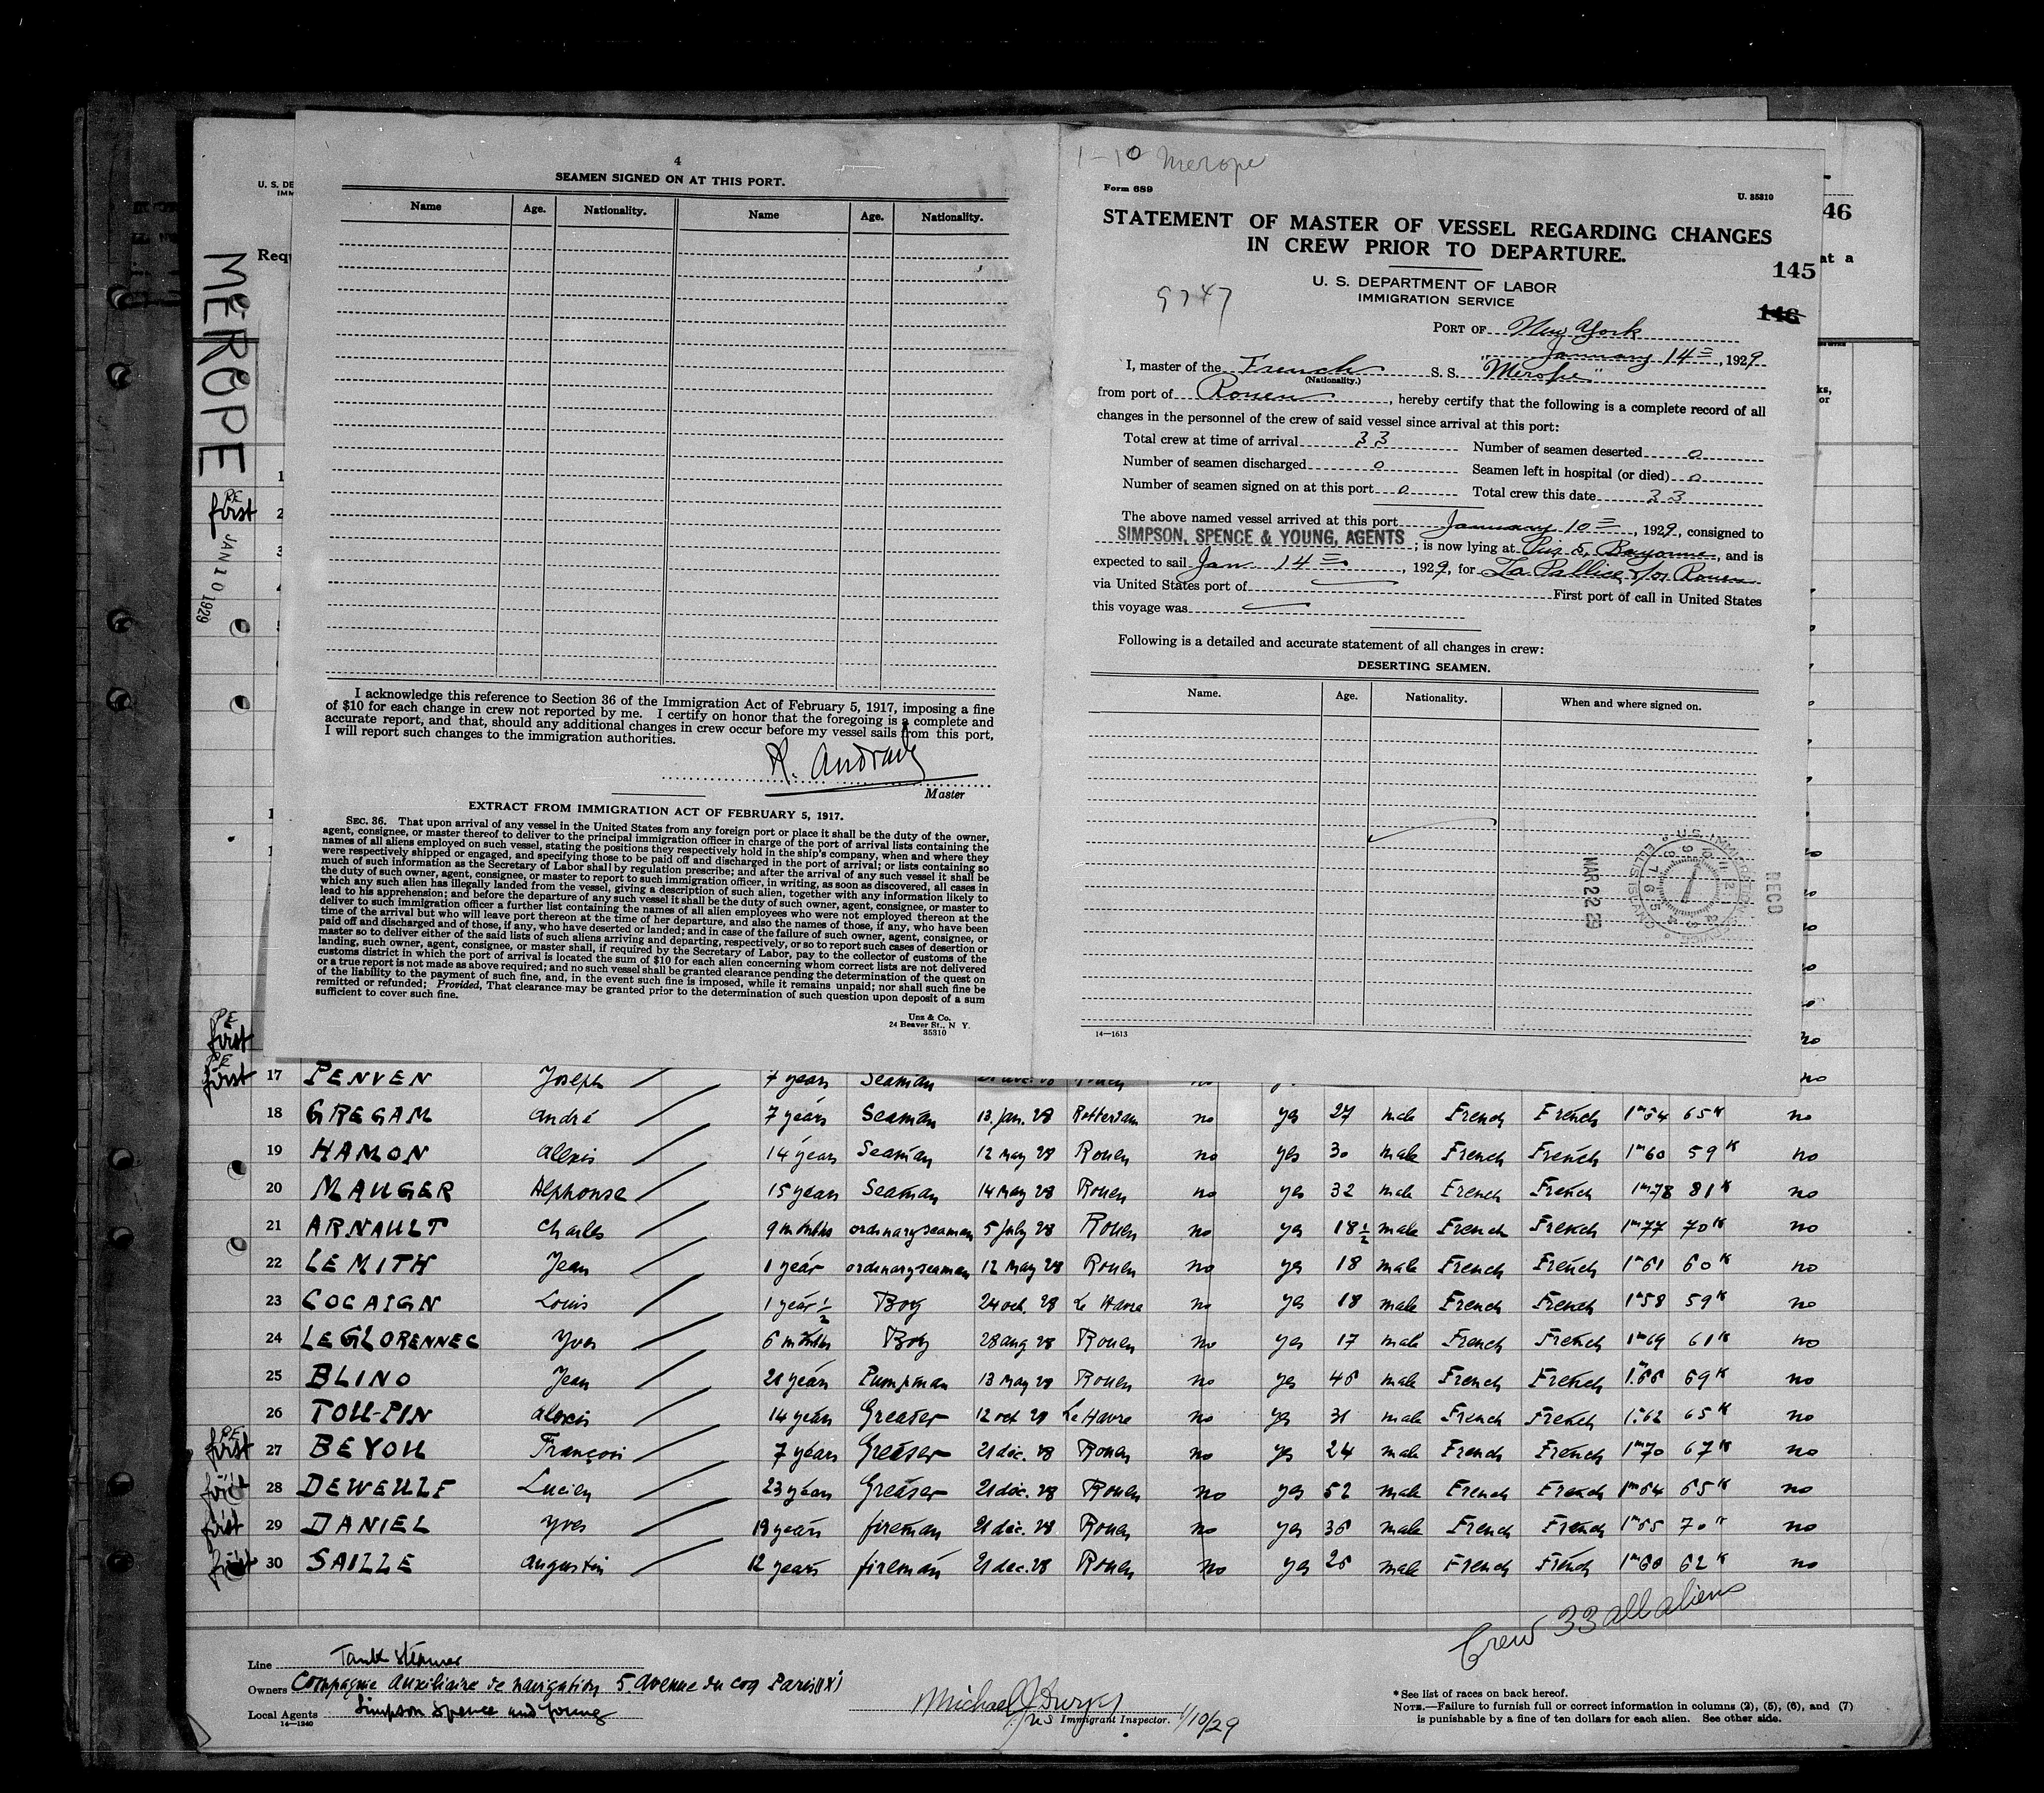 4
SEAMEN SIGNED ON AT THIS PORT.
Name Age. Nationality. Name Age. Nationality.
I acknowledge this reference to Section 36 of the Immigration Act of February 5, 1917, imposing a fine
of $10 for each change in crew not reported by me. I certify on honor that the foregoing is a complete and
accurate report, and that, should any additional changes in crew occur before my vessel sails from this port,
I will report such changes to the immigration authorities.
Master
EXTRACT FROM IMMIGRATION ACT OF FEBRUARY 5, 1917.
SEC. 36. That upon arrival of any vessel in the United States from any foreign port or place it shall be the duty of the owner,
agent, consignee, or master thereof to deliver to the principal immigration officer in charge of the port of arrival lists containing the
names of all aliens employed on such vessel, stating the positions they respectively hold in the ship's company, when and where they
were respectively shipped or engaged, and specifying those to be paid off and discharged in the port of arrival; or lists containing so
much of such information as the Secretary of Labor shall by regulation prescribe; and after the arrival of any such vessel it shall be
the duty of such owner, agent, consignee, or master to report to such immigration officer, in writing, as soon as discovered, all cases in
which any such alien has illegally landed from the vessel, giving a description of such alien, together with any information likely to
lead to his apprehension; and before the departure of any such vessel it shall be the duty of such owner, agent, consignee, or master to
deliver to such immigration officer a further list containing the names of all alien employees who were not employed thereon at the
time of the arrival but who will leave port thereon at the time of her departure, and also the names of those, if any, who have been
paid off and discharged and of those, if any, who have deserted or landed; and in case of the failure of such owner, agent, consignee, or
master so to deliver either of the said lists of such aliens arriving and departing, respectively, or so to report such cases of desertion or
landing, such owner, agent, consignee, or master shall, if required by the Secretary of Labor, pay to the collector of customs of the
customs district in which the port of arrival is located the sum of $10 for each alien concerning whom correct lists are not delivered
or a true report is not made as above required; and no such vessel shall be granted clearance pending the determination of the quest on
of the liability to the payment of such fine, and, in the event such fine is imposed, while it remains unpaid; nor shall such fine be
remitted or refunded; Provided, That clearance may be granted prior to the determination of such question upon deposit of a sum
sufficient to cover such fine.
Unz & Co.
24 Beaver St., N Y.
35310
1-10 Merope
Form 689 U. 35310
STATEMENT OF MASTER OF VESSEL REGARDING CHANGES
IN CREW PRIOR TO DEPARTURE.
145
146
U. S. DEPARTMENT OF LABOR
IMMIGRATION SERVICE
9747
PORT OF New York
January 14, 1929
I, master of the French S. S. "Merope"
(Nationality.)
from port of Rouen, hereby certify that the following is a complete record of all
changes in the personnel of the crew of said vessel since arrival at this port:
Total crew at time of arrival 33 Number of seamen deserted 0
Number of seamen discharged 0 Seamen left in hospital (or died) 0
Number of seamen signed on at this port 0 Total crew this date 33
The above named vessel arrived at this port January 10, 1929, consigned to
SIMPSON, SPENCE & YOUNG, AGENTS; is now lying at Pier 5, Bayonne, and is
expected to sail Jan. 14, 1929, for La Pallice &/or Rouen
via United States port of
First port of call in United States
this voyage was
Following is a detailed and accurate statement of all changes in crew:
DESERTING SEAMEN.
Name. Age. Nationality. When and where signed on.
MAR 22 29
RECD
14—1613
U. S. DE
IMM
Requ
46
at a
MEROPE
JAN 10 1929
PE first
PE first
PE first 17 PENVEN Joseph 7 years Seaman no
18 GREGAM André 7 years Seaman 13. jan. 28 Rotterdam no yes 27 male French French 1m64 65K no
19 HAMON Alexis 14 years Seaman 12 may 28 Rouen no yes 30 male French French 1m60 59K no
20 MAUGER Alphonse 15 years Seaman 14 may 28 Rouen no yes 32 male French French 1m78 81K no
21 ARNAULT Charles 9 months ordinary seaman 5 july 28 Rouen no yes 18½ male French French 1m77 70K no
22 LE MITH Jean 1 year ordinary seaman 12 may 28 Rouen no yes 18 male French French 1m61 60K no
23 COCAIGN Louis 1 year ½ Boy 24 oct. 28 Le Havre no yes 18 male French French 1m58 59K no
24 LE GLORENNEC Yves 6 months Boy 28 aug 28 Rouen no yes 17 male French French 1m69 61K no
25 BLINO Jean 21 years Pumpman 13 may 28 Rouen no yes 45 male French French 1m66 69K no
26 TOUPIN Alexis 14 years Greaser 12 oct 28 Le Havre no yes 31 male French French 1m62 65K no
PE first 27 BEYOU François 7 years Greaser 21 dec. 28 Rouen no yes 24 male French French 1m70 67K no
first 28 DEWEULF Lucien 23 years Greaser 21 dec. 28 Rouen no yes 52 male French French 1m64 65K no
first 29 DANIEL Yves 19 years fireman 21 dec. 28 Rouen no yes 36 male French French 1m65 70K no
first 30 SAILLE Augustin 12 years fireman 21 dec. 28 Rouen no yes 26 male French French 1m60 62K no
Crew 33 all aliens
Line Tank Steamer
Owners Compagnie Auxiliaire de navigation 5. Avenue du Coq Paris (IX)
Local Agents Simpson Spence and Young
14—1240
Immigrant Inspector. 1/10/29
* See list of races on back hereof.
NOTE.—Failure to furnish full or correct information in columns (2), (5), (6), and (7)
is punishable by a fine of ten dollars for each alien. See other side.